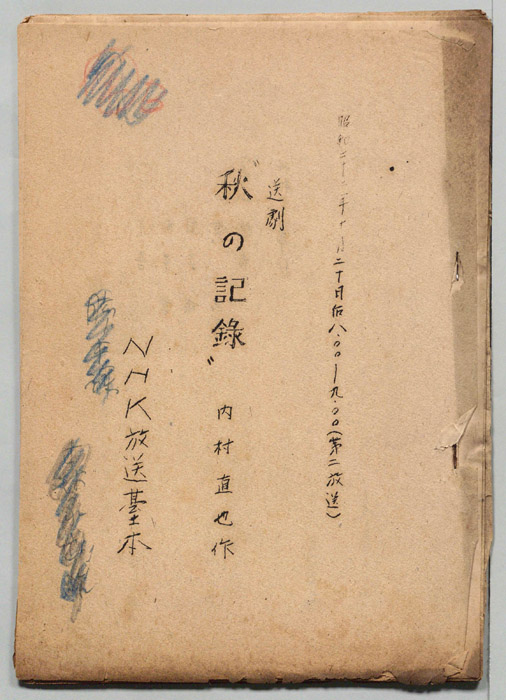 昭和二十二年十一月二十日后八.〇〇ー九.〇〇(第二放送)
送劇
"秋の記録"
内村直也作
NHK放送臺本